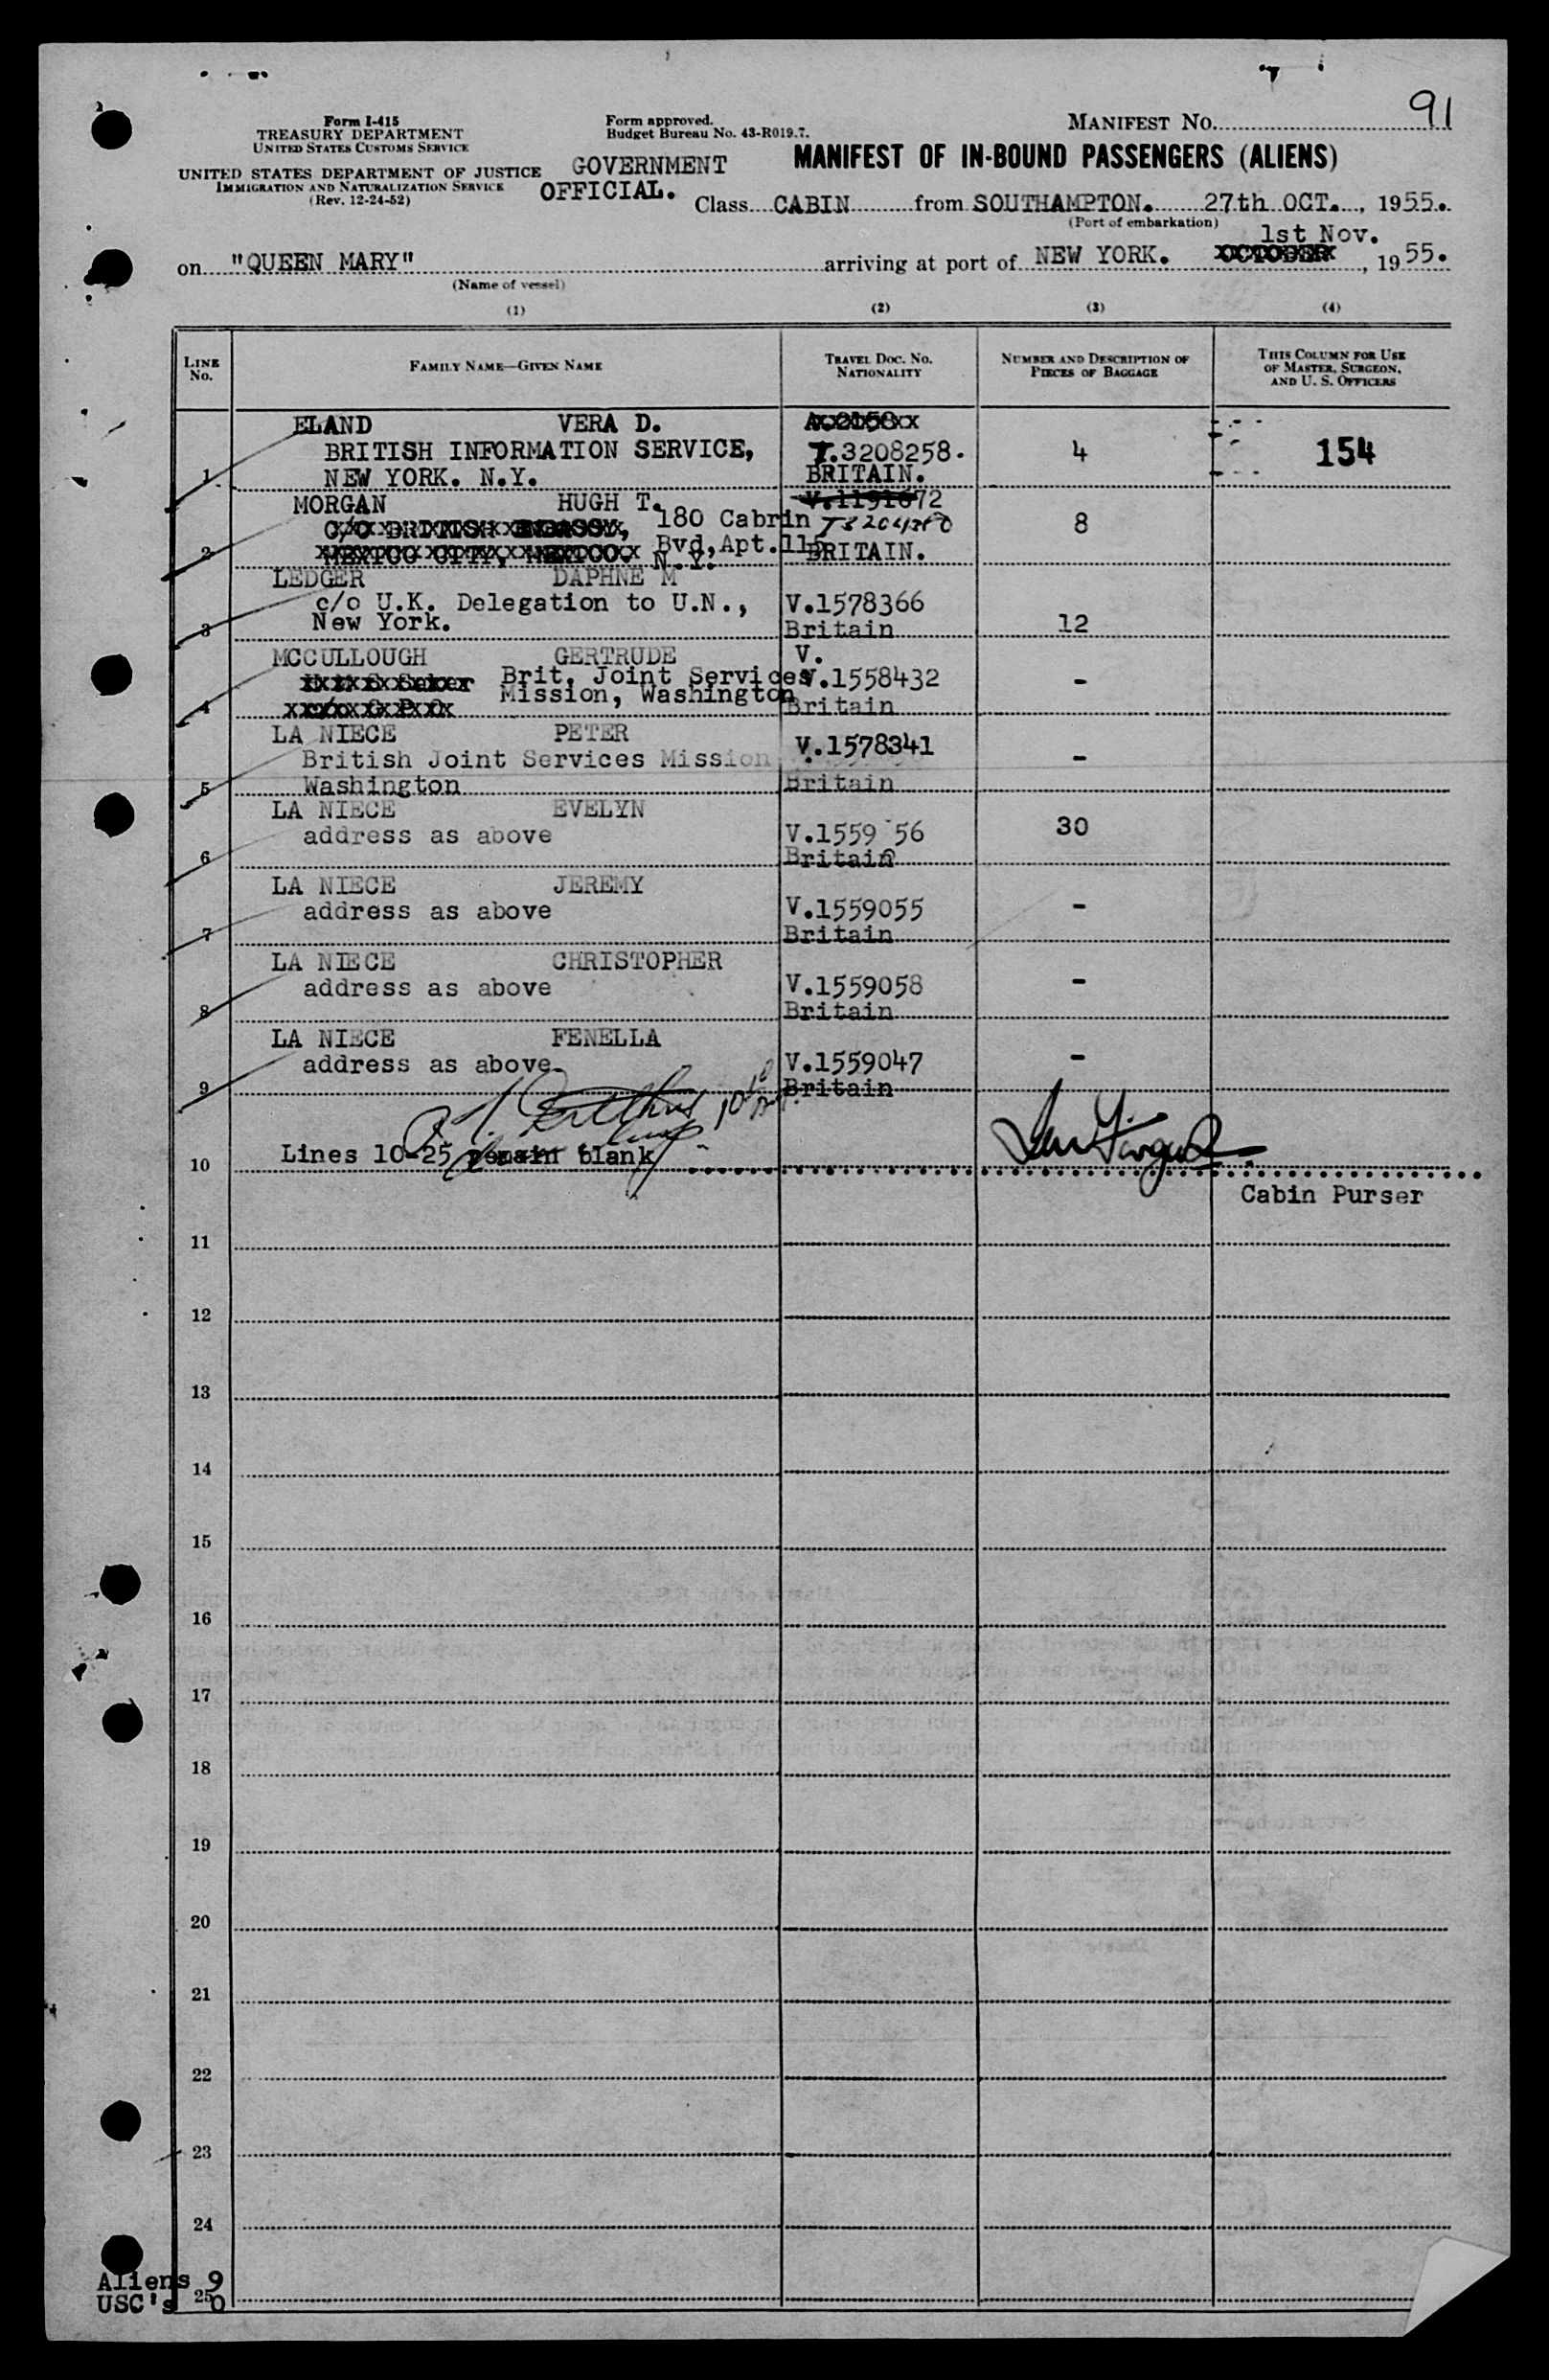 91
Form I-415
TREASURY DEPARTMENT
UNITED STATES CUSTOMS SERVICE
UNITED STATES DEPARTMENT OF JUSTICE
IMMIGRATION AND NATURALIZATION SERVICE
(Rev. 12-24-52)
Form approved.
Budget Bureau No. 43-R019.7.
GOVERNMENT
OFFICIAL.
MANIFEST NO.
MANIFEST OF IN-BOUND PASSENGERS (ALIENS)
Class CABIN from SOUTHAMPTON. 27th OCT., 1955.
(Port of embarkation)
1st Nov.
on "QUEEN MARY" arriving at port of NEW YORK. OCTOBER, 1955.
(Name of vessel)
(1) (2) (3) (4)
LINE No.
FAMILY NAME—GIVEN NAME
TRAVEL DOC. NO. NATIONALITY
NUMBER AND DESCRIPTION OF PIECES OF BAGGAGE
THIS COLUMN FOR USE OF MASTER, SURGEON, AND U. S. OFFICERS
ELAND VERA D.
BRITISH INFORMATION SERVICE, T.3208258. 4 154
1 NEW YORK. N.Y. BRITAIN.
MORGAN HUGH T. V.1191672
C/O BRITISH EMBASSY, 180 Cabrin 8
2 MEXICO CITY, MEXICO. Bvd,Apt.11 BRITAIN.
N.Y.
LEDGER DAPHNE M
c/o U.K. Delegation to U.N., V.1578366
3 New York. Britain 12
MCCULLOUGH GERTRUDE V.
Brit. Joint Services V.1558432 -
4 Mission, Washington Britain
LA NIECE PETER
British Joint Services Mission V.1578341 -
5 Washington Britain
LA NIECE EVELYN
address as above V.1559 56 30
6 Britain
LA NIECE JEREMY
address as above V.1559055 -
7 Britain
LA NIECE CHRISTOPHER
address as above V.1559058 -
8 Britain
LA NIECE FENELLA
address as above. V.1559047 -
9 Britain
10 Lines 10-25 remain blank
Cabin Purser
11
12
13
14
15
16
17
18
19
20
21
22
23
24
25
Aliens 9
USC's 0